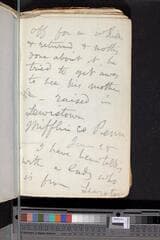 off for a while
& returns & nothing
done about it he
tried to get away
to see his mother
he - raised in
Lewistown
Mifflin co Penn
June 20
I have been talking
with a lady who
is from Lewistown